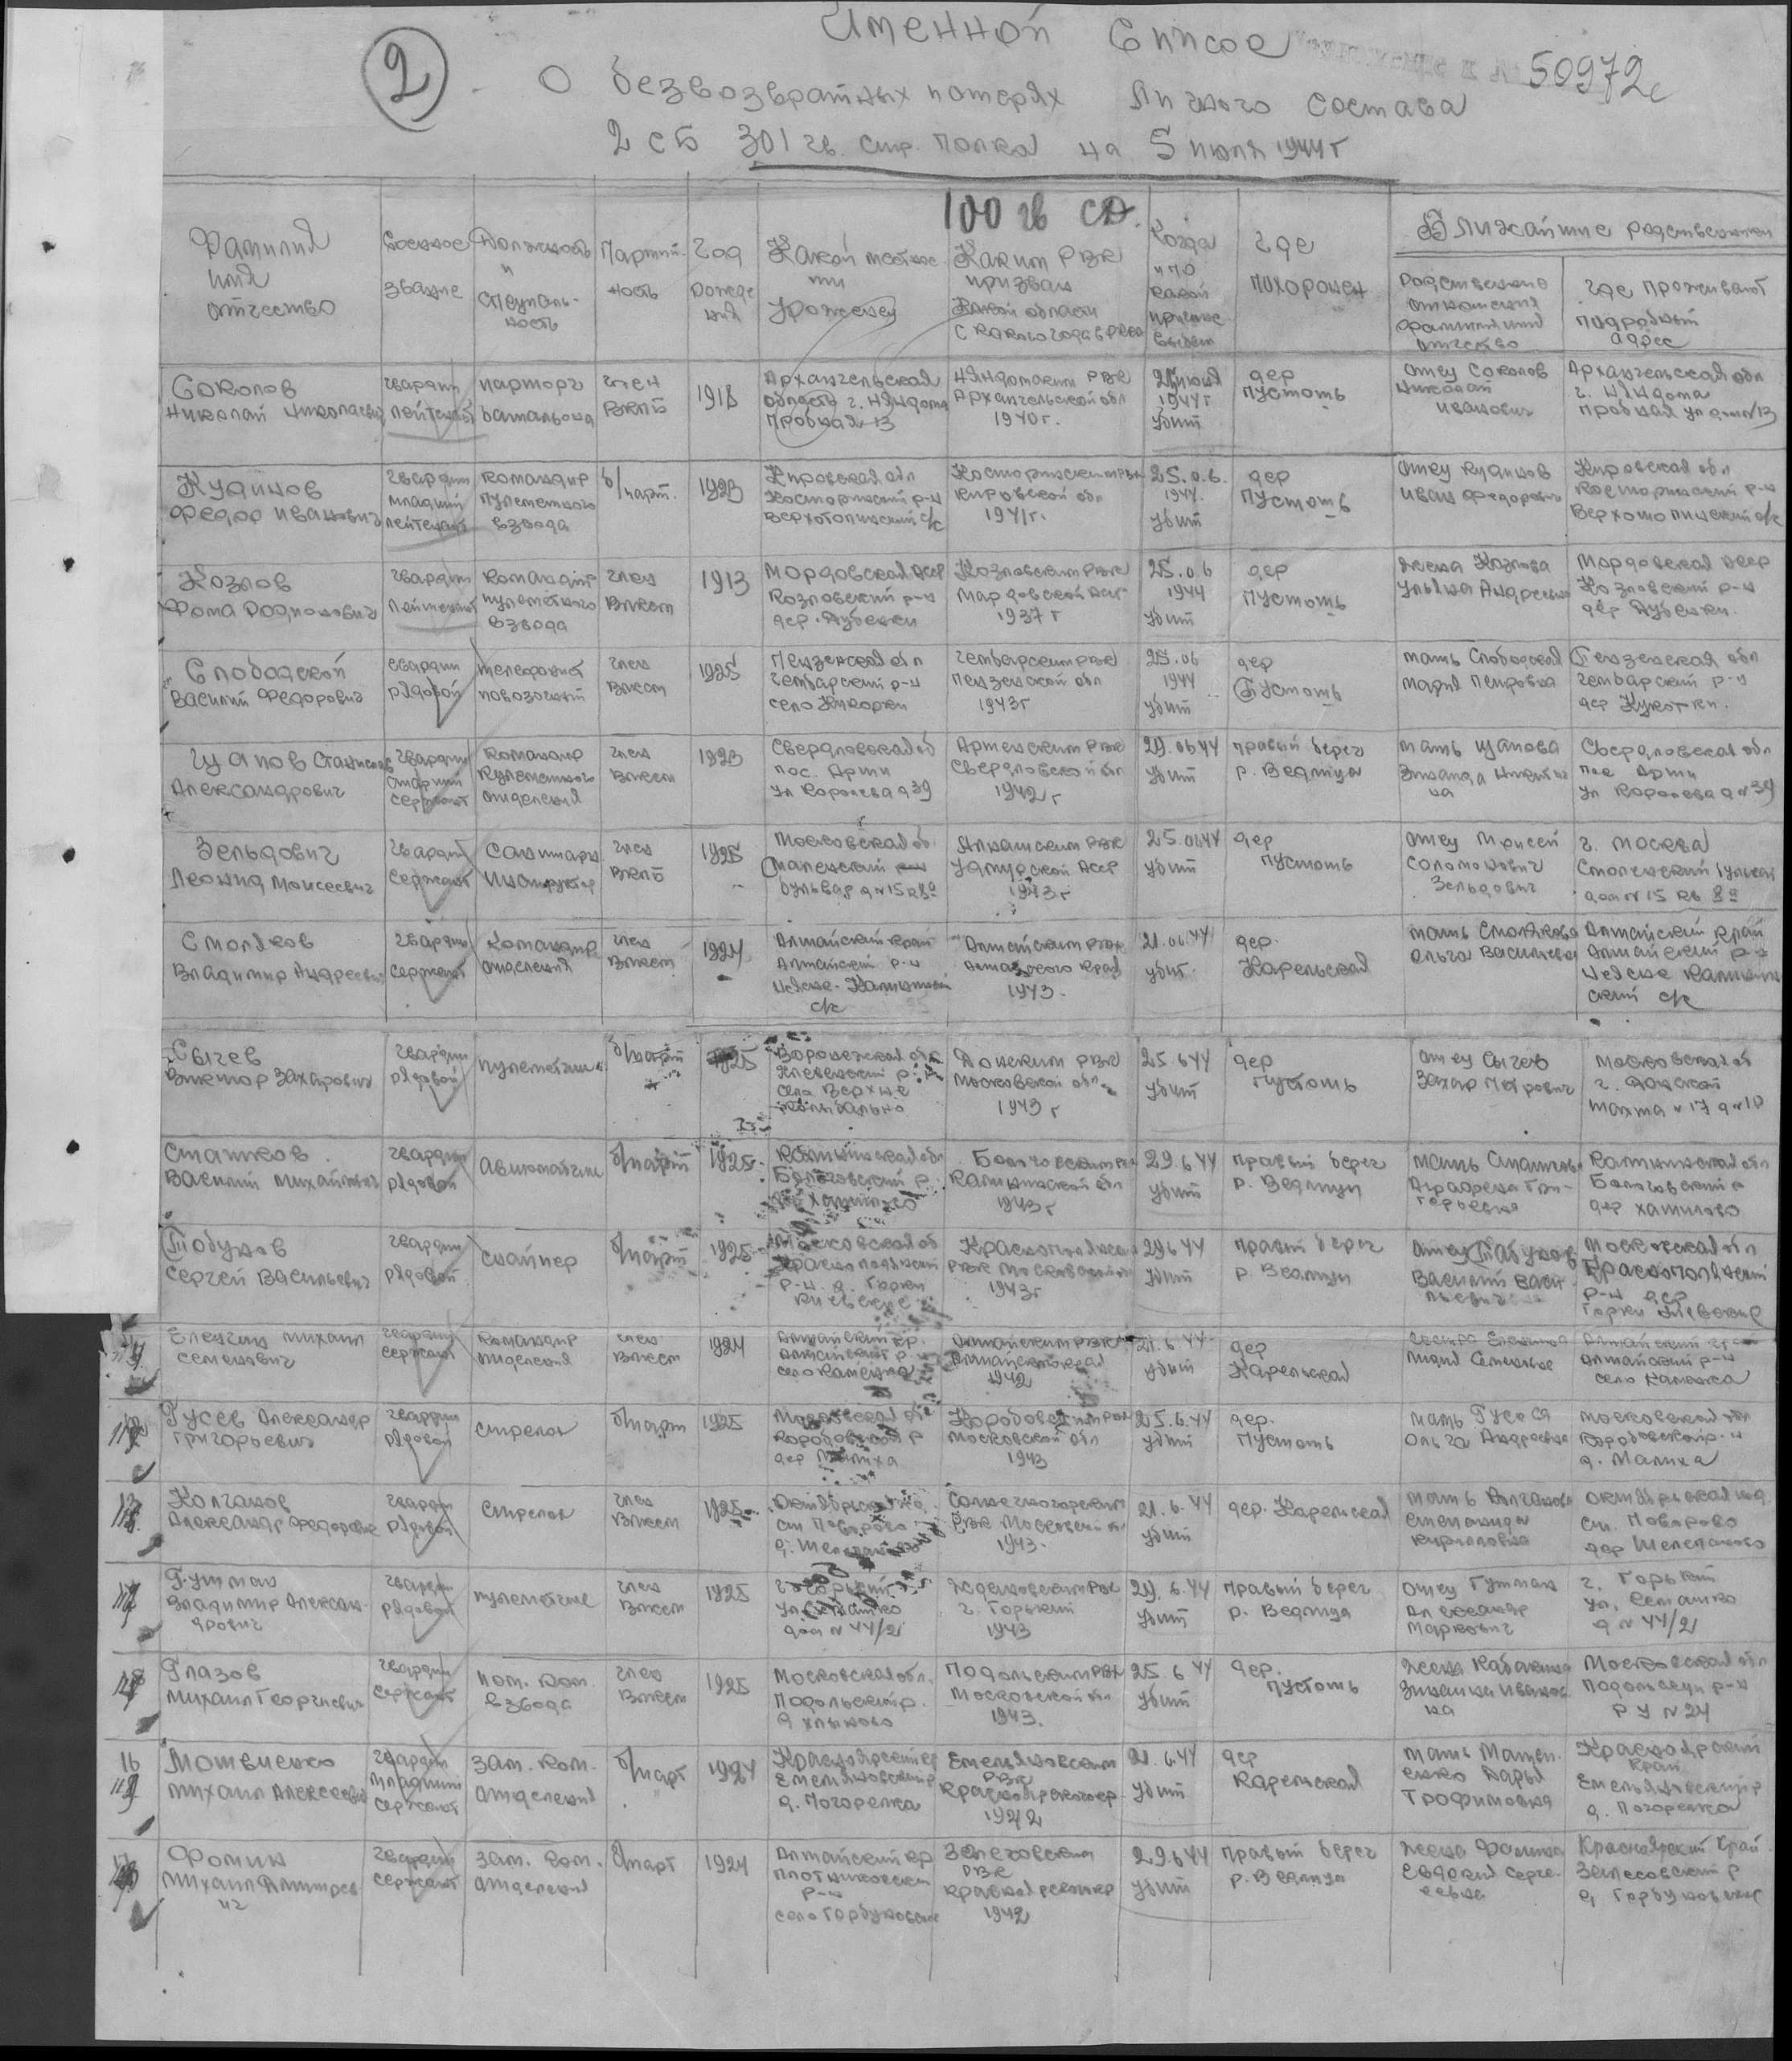 Именной Список
50972с
2
О безвозвратных потерях личного состава
2 сб 301 гв. стр. полка на 5 июля 1944 г
100 гв СД.
Фамилия имя отчество
Военное звание
Должность и специаль-ность
Партий-ность
Год рожде ния
Какой местнос ти уроженец
Каким РВК призван какой области с какого года в РККА
Когда и по какой причине выбыл
где похоронен
Ближайшие родственники
Родственные отношения фамилия имя отчество
где проживают подробный адрес
Соколов Николай Николаевич гвардии лейтенант парторг батальона член ВКПб 1918 Архангельская область г. Няндома Пробная 13 Няндомским РВК Архангельской обл 1940 г. 25 июня 1944 г убит дер Пустошь отец Соколов Николай Иванович Архангельская обл г. Няндома Пробная ул дом N 13
Кудинов Федор Иванович гвардии младший лейтенант командир пулеметного взвода б/парт. 1923 Кировская обл р-н с/с РВК Кировской обл 1941 г. 25.06. 1944. убит дер Пустошь отец Кудинов Иван Федорович Кировская обл р-н с/с
Козлов Фома Родионович гвардии лейтенант командир пулеметного взвода член ВЛКСМ 1913 Мордовская АССР Козловский р-н дер. Дубенки Козловским РВК Мордовской АССР 1937 г 25.06 1944 убит дер Пустошь жена Козлова Ульяна Андреевна Мордовская АССР Козловский р-н дер Дубенки.
Слободской Василий Федорович гвардии рядовой телефонист повозочный член ВЛКСМ 1925 Пензенская обл Чембарский р-н село Чембарским РВК Пензенской обл 1943 г 25.06 1944 убит дер Пустошь мать Слободская Мария Петровна Пензенская обл Чембарский р-н дер
Щапов Станислав Александрович гвардии старший сержант командир пулеметного отделения член ВЛКСМ 1923 Свердловская об пос. Арти ул Королева д 39 Артинским РВК Свердловской обл 1942 г 29.06 44 убит правый берег р. Ведлица мать Щапова Зинаида Никитич на Свердловская обл пос Арти ул Королева д N 39
Зельдович Леонид Моисеевич гвардии сержант санитарн инструктор член ВКПб 1925 Московская об Смоленский бульвар д N 15 кв 8а Алнашским РВК Удмурдской АССР 1943 г 25.06 44 убит дер Пустошь отец Моисей Соломонович Зельдович г. Москва Смоленский бульвар дом N 15 кв 8а
Смоляков Владимир Андреевич гвардии сержант командир отделения член ВЛКСМ 1924 Алтайский край Алтайский р-н с/с Алтайским РВК Алтайского края 1943. 21.06 44 убит. дер. Карельская мать Смолякова Ольга Васильевна Алтайский край Алтайский р-н с/с
Сычев Виктор Захарович гвардии рядовой пулеметчик б/парт 1925 Воронежская обл р-н село Верхне Донским РВК Московской обл. 1943 г 25.6 44 убит дер Пустошь отец Сычев Захар Петрович Московская об г. Донской шахта N 17 д N 10
Сташков. Василий Михайлович гвардии рядовой автоматчик б/парт 1925 Калининская обл Бологовский р. Хотилово Бологовским РВК Калининской обл 1943 г 29.6 44 убит правый берег р. Ведлицы мать Сташкова Аграфена Гри-горьевна Калининская обл Бологовский р дер Хатилово
Табунов Сергей Васильевич гвардии рядовой снайпер б/парт 1925 Московская об Краснополянский р-н д. Горки Киевские Краснополянским РВК Московской об 1943 г 29 6 44 убит правый берег р. Ведлицы отец Табунов Василий Васи-льевич Московская обл Краснополянский р-н дер Горки Киевские
Еленин Михаил Семенович гвардии сержант командир отделения член ВЛКСМ 1924 Алтайский кр. Алтайский р-н село Каменка Алтайским РВК Алтайского края 1942 21.6.44 убит дер Карельская сестра Лидия Семеновна Алтайский край Алтайский р-н село Каменка
Гусев Александр Григорьевич гвардии рядовой стрелок б/парт 1925 Московская об Коробовский р дер Малиха Коробовским РВК Московской обл 1943 25.6.44 убит дер. Пустошь мать Гусева Ольга Андреевна Московская обл Коробовский р-н д. Малиха
13 Колганов Александр Федорович гвардии рядовой стрелок член ВЛКСМ 1925 Октябрьская жд. ст Поварово д. Шелепаново Солнечногорским РВК Московской об 1943. 21.6.44 убит дер. Карельская мать Колганова Степанида Кирилловна Октябрьская жд. ст. Поварово дер Шелепаново
Гутман Владимир Алексан-дрович гвардии рядовой пулеметчик член ВЛКСМ 1925 г Горький ул. Семашко дом N 44/21 Ждановским РВК г. Горький 1943 29.6.44 убит правый берег р. Ведлица отец Гутман Александр Маркович г. Горький ул. Семашко д N 44/21
Глазов Михаил Георгиевич гвардии сержант пом. ком. взвода член ВЛКСМ 1925 Московская обл. Подольский р. Подольским РВК Московской обл 1943. 25.6 44 убит дер. Пустошь жена Зинаида Иванов на Московская обл Подольский р-н РУ N 24
16 Мотвиенко Михаил Алексеевич гвардии младший сержант зам. ком. отделения б/парт 1924 Красноярский кр Емельяновский р д. Погорелка Емельяновским РВК Красноярского кр 1942 21.6.44 убит дер Карельская мать Матви-енко Дарья Трофимовна Красноярский край Емельяновский р д. Погорелка
17 Фомин Михаил Дмитриев ич гвардии сержант зам. ком. отделения б/парт 1924 Алтайский кр Плотниковский р-н село Горбуновское Залесовским РВК Красноярского кр 1942 29.6 44 убит правый берег р. Ведлица жена Фомина Евдокия Серге-еевна Красноярский край Залесовский р с. Горбуновское